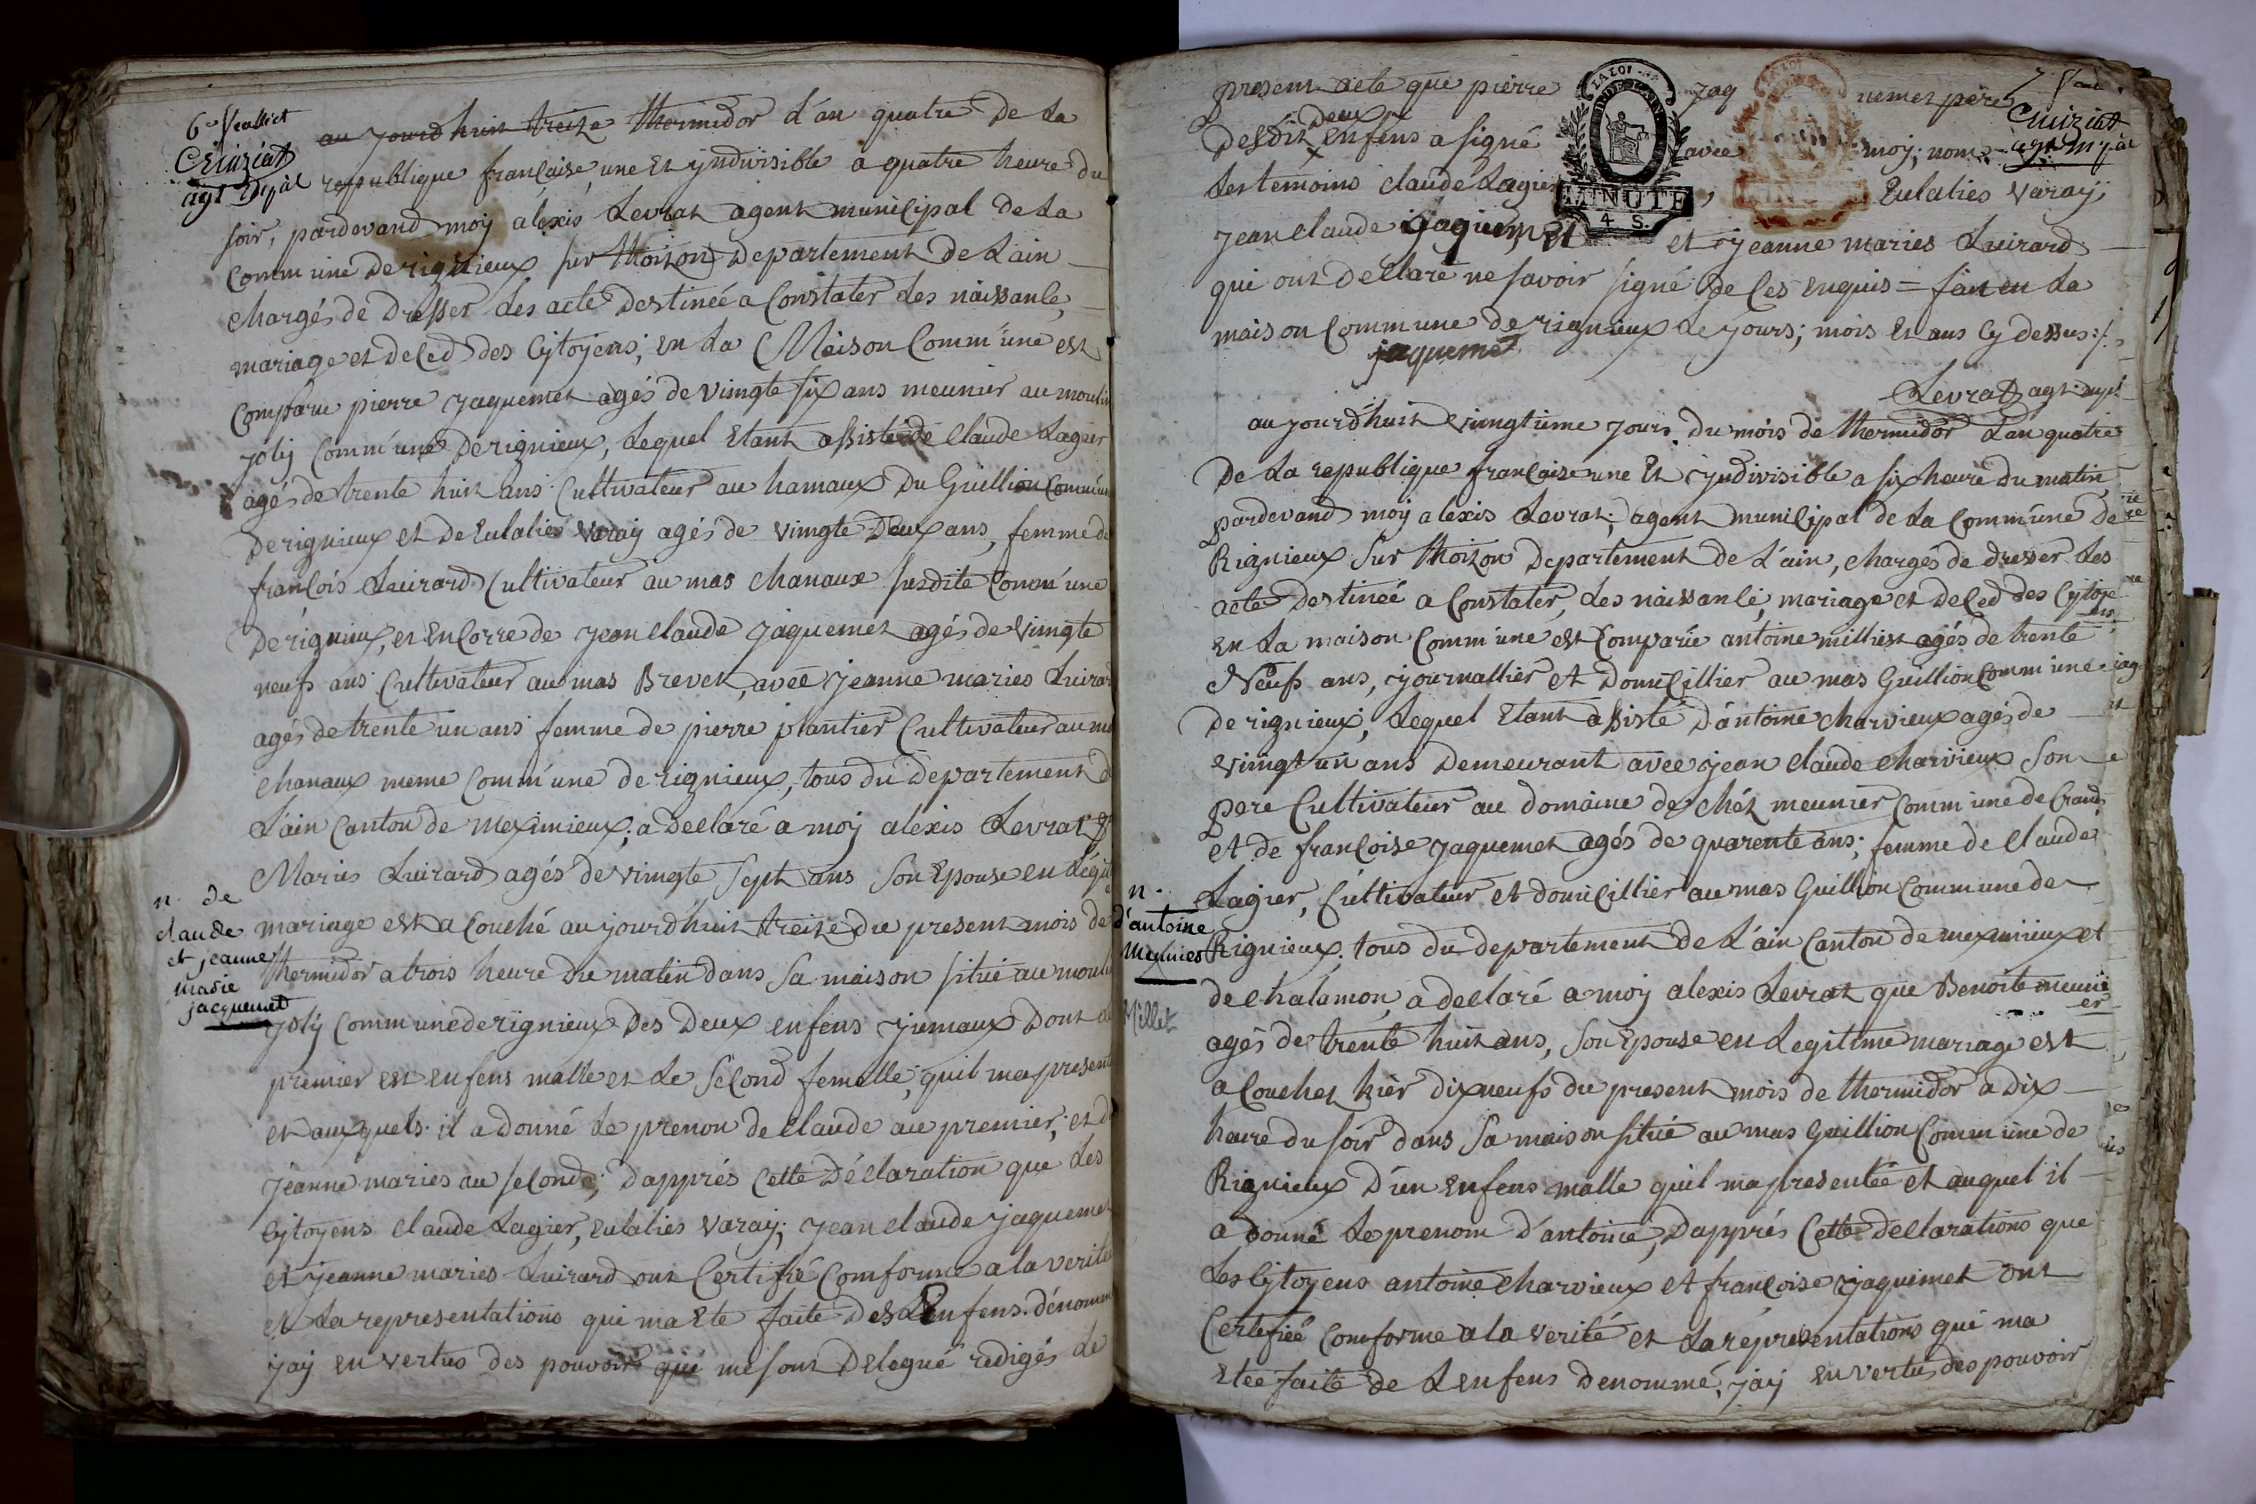 6e feuillet
Cruiziat
agt mpal
au jourd'huit treize thermidor d'an quatre de La
republique française, une et yndivisible a quatre heure du
soir, pardevand moy alexis Levrat agent municipal de La
Comm'une de rignieux sur thoizon departement de L'ain
chargés de dresser Les acte destinéé a Constater Les naissance,
mariage et deCed des Cytoyens; en La Maison Comm'une est
Comparu pierre jaquemet agés de vingte six ans meunier au moulin
joly Comm'une de rignieux, Lequel Etant assisté de Claude Lagier
agés de trente huit ans Cultivateur au hamaux du Guillion Comm'une
de rignieux et de Eulalies varay agés de vingte deux ans, femme de
françois Luirard Cultivateur au mas chanaux susdite Comm'une
de rignieux, et enCorre de jean claude jaquemet agés de vingte
neufs ans Cultivateur au mas Brevet, avec jeanne maries Luirard
agés de trente un ans femme de pierre plantier Cultivateur au mas
chanaux meme Comm'une de rignieux, tous du departement de
L'ain Canton de meximieux; a declaré a moy alexis Levrat
Maries Luirard agés de vingte sept ans son Epouse en Légit
n. de
claude
et jeanne
marie
jacquemet
mariage est a Couché au jourd'huit treize du present mois de
thermidor a trois heure du matin dans sa maison situé au moulin
joly Commune de rignieux des deux enfens jumaux dont le
premier est enfens malle et Le seCond femelle, quil ma present
et auxquels il a donné Le prenon de claude au premier, et de
jeanne maries au seConde; d'apprés Cette déclaration que Les
Cytoyens claude Lagier, eulalies varay; jean claude jaquemet
et jeanne maries Luirard ont Certifié Comforme a la verité
et La representations qui ma Ete faite des Enfens dénommé
jay en vertus des pouvoirs qui me sont delegué redigés Le
7e feuil.
Cruiziat
agt mpal
present acte que pierre jaquemet père
desdit deux enfens a signé avec moy; nom
Les temoins claude Lagier, Eulalies varay
jean claude jaquemet et jeanne maries Luirard
qui ont declaré ne savoir signé de Ces enquis = fait en La
maison Commune de rignieux Le jours; mois et ans Cy dessus ./.
jaquemet
MINUTE
4 S.
Levrat agt mpl
au jourd'huit vingtieme jours du mois de thermidor L'an quatre
de La republique française une et yndivisible a six heure du matin
pardevand moy alexis Levrat; agent municipal de La Comm'une de
Rignieux sur thoizon departement de L'ain, chargés de dresser Les
acte destinéé a Constater, Les naissance, mariage et deCed des Cytoye-
ns,
en La maison Comm'une est Comparue antoine millet agés de trente
Neufs ans, journallier et domiCillier au mas Guillion Comm'une
de rignieux, Lequel Etant assisté d'antoine charvieux agés de
vingt un ans demeurant avec jean claude charvieux son
pere Cultivateur au domaine de chéz meunier Comm'une de Crans
et de françoise jaquemet agés de quarente ans; femme de claude
Lagier, Cultivateur et domiCillier au mas Guillion Commune de
n.
d'antoine
meunier
Millet
Rignieux, tous du departement de L'ain Canton de meximieux et
de chalamon, a declaré a moy alexis Levrat que Benoite meuni
er
agés de trente huit ans, son Epouse en Legitime mariage est
a Couchet hièr dixneufs du present mois de thermidor a dix
heure du soir dans sa maison situé au mas Guillion Comm'une de
Rignieux d'un enfens malle quil ma presentéé et auquel il
a donné Le prenom d'antoine, d'apprés Cette declarations que
Les Cytoyens antoine charvieux et françoise jaquimet ont
Certefiéé Comforme a la verité et La representations qui ma
Etéé faite de Lenfens denommé, jay en vertu des pouvoir